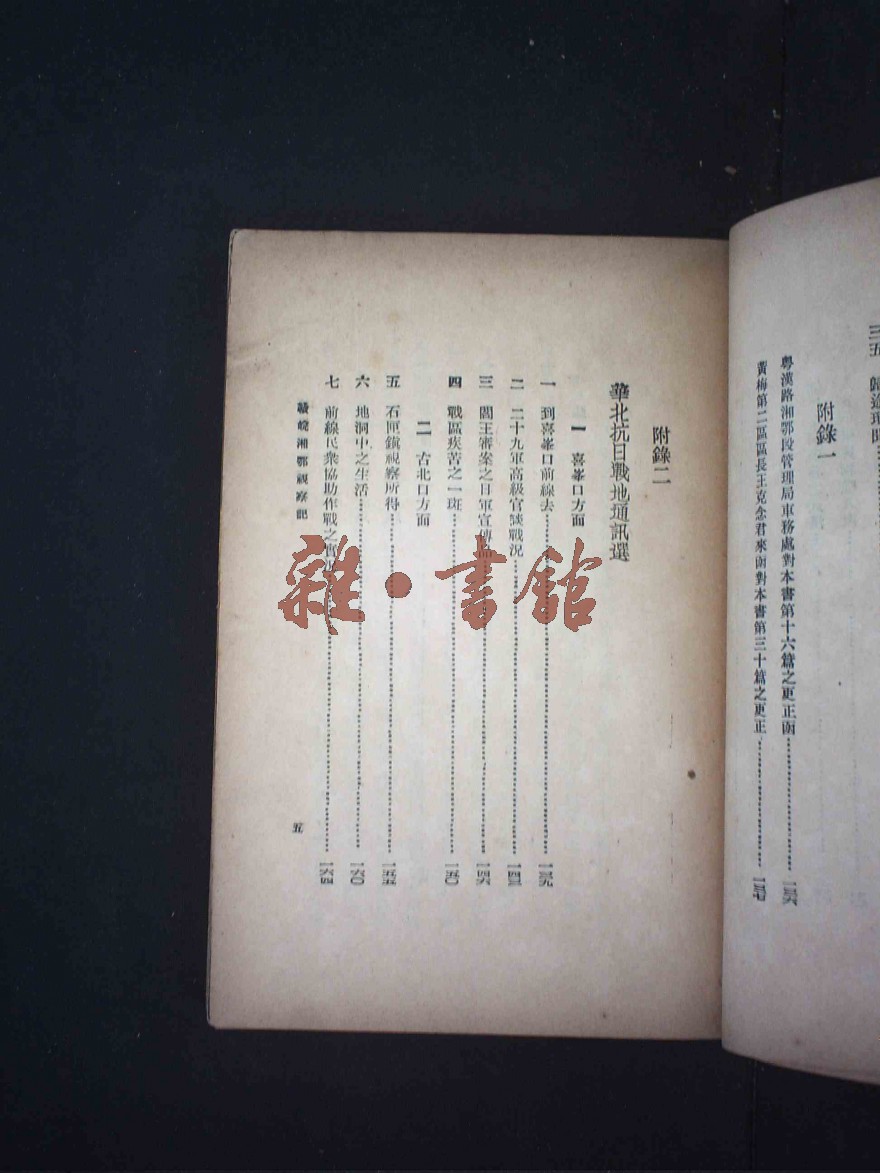 三五 歸途
附錄一
粵漢路湘鄂段管理局車務處對本書第十六篇之更正函……一三六
黃梅第二區區長王克念君來函對本書第三十篇之更正……一三七
附錄二
華北抗日戰地通訊選
一 喜峯口方面
一 到喜峯口前線去……一三九
二 二十九軍高級官談戰況……
三 閻王審案之日軍宣傳品……一四六
四 戰區疾苦之一斑……一五〇
二 古北口方面
五 石匣鎮視察所得……一五五
六 地洞中之生活……一六〇
七 前線民衆協助作戰之實況……一六四
贛皖湘鄂視察記
五
雜·書館